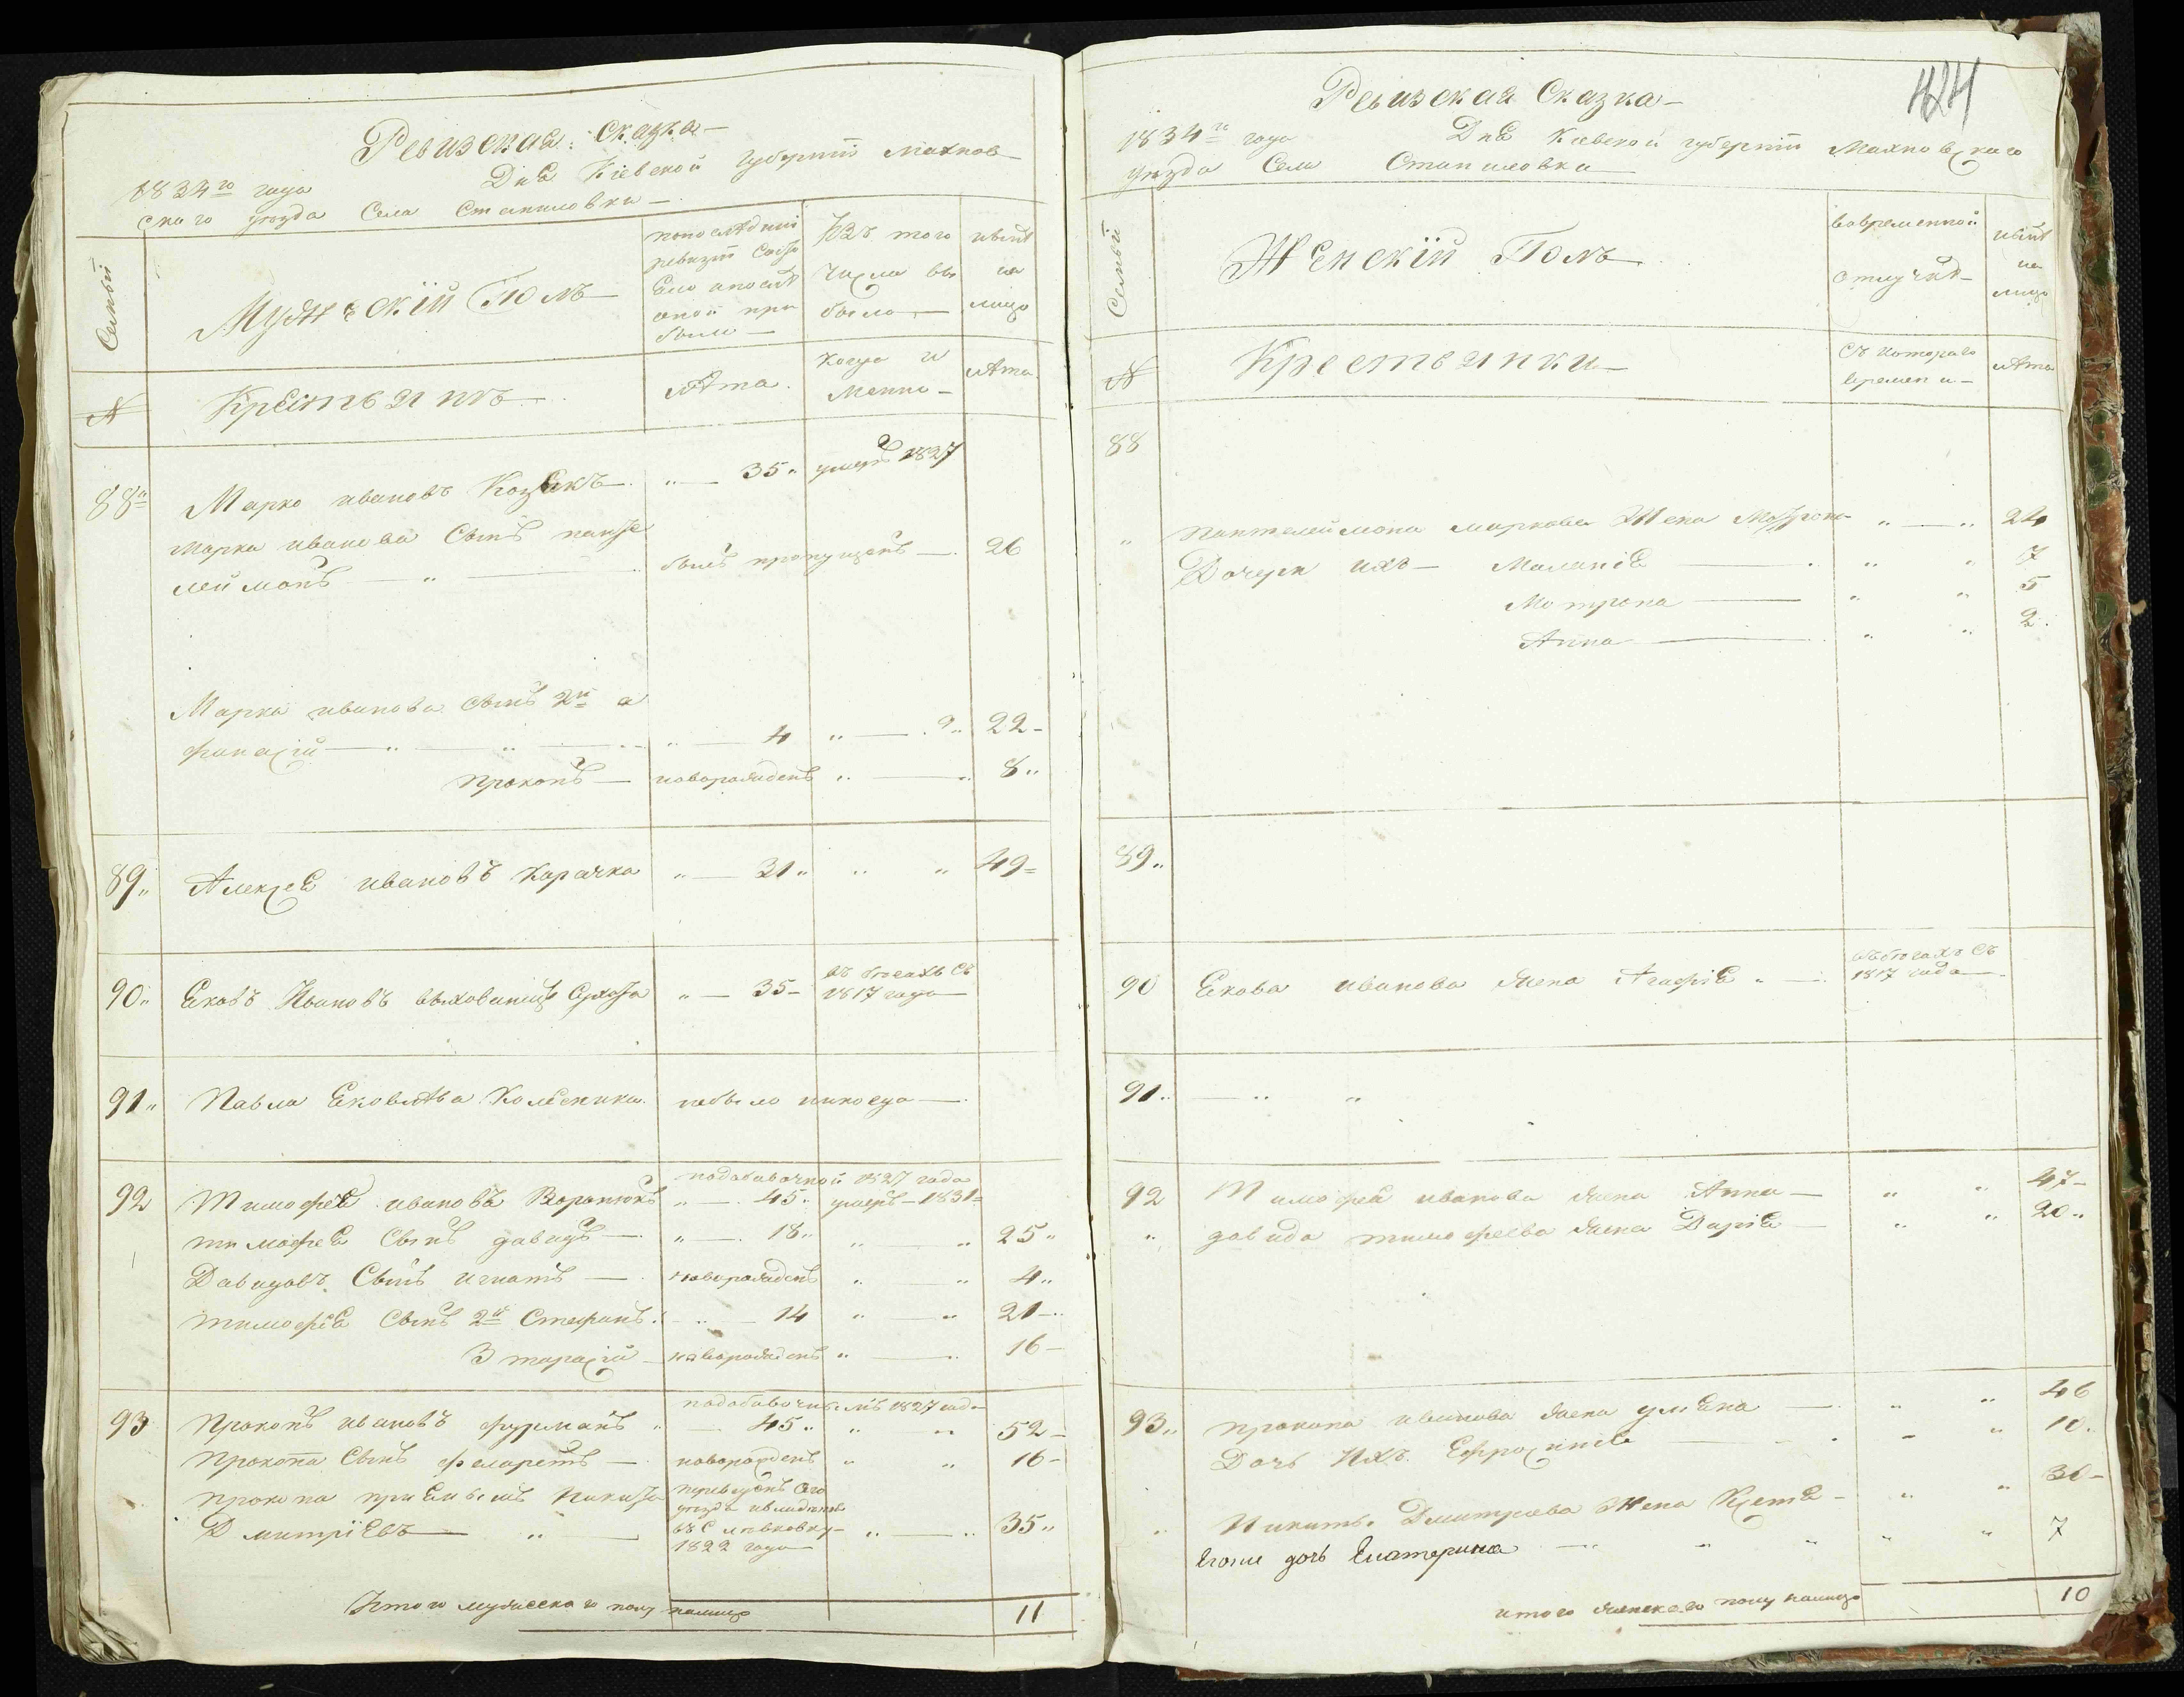 Ревизская: сказка —
1834го года Дня Кіевской губерніи Махнов
ского уезда Села Станиловки —
Семьи
Мужескій Полъ
попоследний
ревизіи Состо
Ело апослѣ
оной при
были —
Изъ того
числа вы
было —
ныне
на
лицо
№
Крестьянъ
лѣта.
когда и
Менно —
лѣта
88й Марко ивановъ Козекъ — 35 „ умеръ 1827
Марка иванова Сынъ панте
леймонъ — „ — былъ пропущенъ — 26
Марка иванова Сынъ 2й а
фанасій — „ — „ — „ — 4 „ — „ 22 —
прокопъ — новорожденъ „ — „ 8 „
89 „ Алексѣй ивановъ Карачка „ — 31 „ „ „ 49 =
90 „ Ековъ Ивановъ „ — 35 — въ бегахъ съ
1817 года —
91 „ Павла Ековлѣва Колесника небыло никого —
подобавочной 1827 года
92 Тимофей ивановъ Воронюкъ „ — 45 „ умеръ — 1831 =
тимофея Сынъ давидъ — „ — 18 „ „ — „ 25 „
Давидовъ Сынъ игнатъ — новорожденъ „ „ 4 „
тимофея Сынъ 2й Стефанъ „ — 14 „ — „ 21 —
3 тарасій — новорожденъ „ — „ 16 —
подобавочнымъ 1827 года
93 Прокопъ ивановъ фурманъ „ — 45 „ „ „ 52 —
Прокопа Сынъ филаретъ — новорожденъ „ „ 16 —
прокопа приемышъ Никита
Дмитріевъ — „ — 1822 года „ — „ 35 „
Итого мужеска го полу налицо 11
424
Ревизская Сказка —
1834го года Дня Кіевской губерніи Махновскаго
уезда Села Станиловки
Семьи
Женскій Полъ
вовременной
отлучкѣ —
ныне
на
лицо
№
Крестьянки —
Съ котораго
времени —
лѣта
88
„ Пантелеймона маркова Жена Мотрона „ — „ 24
Дочери ихъ — Маланіе — „ „ 7
Мотрона — „ „ 5
Анна — „ „ 2
89 „
90 Екова иванова жена Агафіе „ — въ бегахъ съ
1817 года —
91 „ — „ „
92 Тимофея иванова жена Анна — „ „ 47 —
„ давида тимофеева жена Даріе — „ „ 20 „
93 „ прокопа иванова жена улиена — „ „ 46
Дочь Ихъ Ефросиніе — „ „ 10
„ Никиты Дмитрова Жена — „ „ 30 —
Егоже дочь Екатерина — „ „ „ „ 7
итого женскаго полу налицо 10